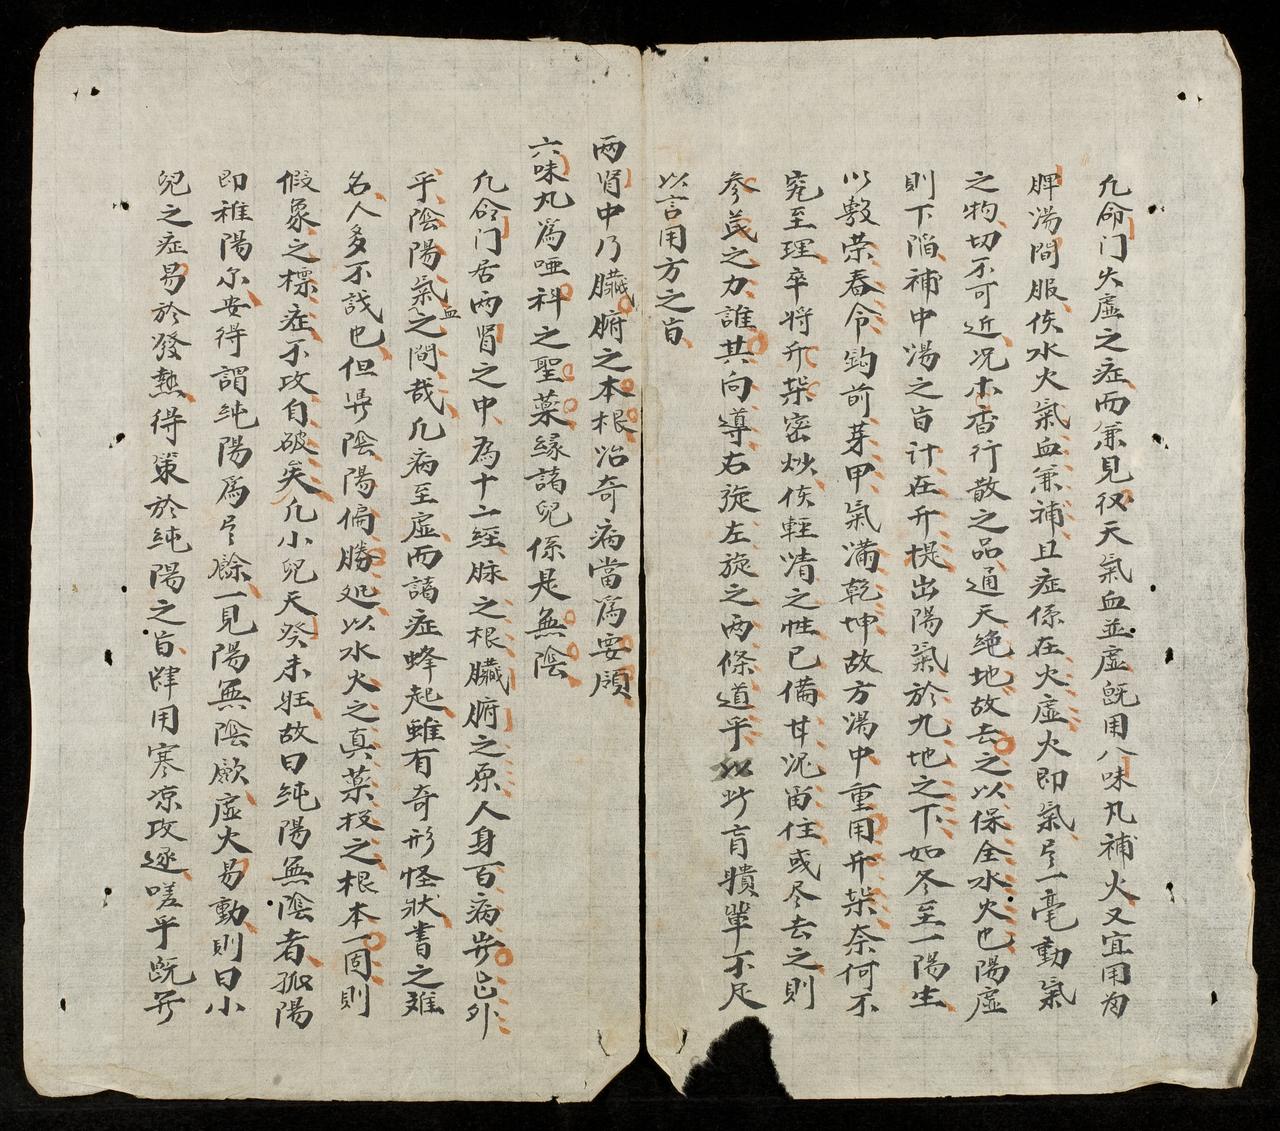 凡命门火虛之症而兼見後天氣血並虛既用八味丸補火又宜用匂
脾湯間服俟水火氣血兼補且症係在火虛火即氣也一毫動氣
之物切不可近况木香行散之品通天絶地故去之以保全水火也陽虛
則下陷補中湯之旨計在升提出陽氣於九地之下如冬至一陽生
以敷荣春令鈎前芽甲氣滿乾坤故方湯中重用升柴奈何不
究至理卒将升柴密炒俟輕清之性已僞甘泥留住或尽去之則
參茋之力誰其向導右旋左旋之两條道乎此肓瞶輩不足
以言用方之旨
两肾中乃臟腑之本根治奇病當爲要顧
六味丸爲啞科之聖藥緣謁兒係是無陰
凡命门居两肾之中為十二經脉之根臟腑之原人身百病岁㠯外
乎陰陽氣血之間哉凡病至虛而謁症蜂起雖有奇形怪狀書之難
名人多不识也但另陰陽偏勝処以水火之真藥投之根本一固則
假象之標症不攻自破矣凡小兒天癸未旺故曰純陽無陰者孤陽
即稚陽尔安得謂純陽爲㠯餘一見陽無陰厥虛火易動則曰小
兒之症易於發熱得策於純陽之旨肆用寒凉攻逐嗟乎既另